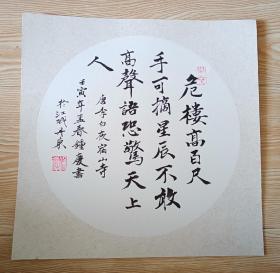 危樓高百尺
手可摘星辰不敢
高聲語恐驚天上
人
唐李白夜宿山寺
壬寅年孟春鍾慶書
於江城丹東